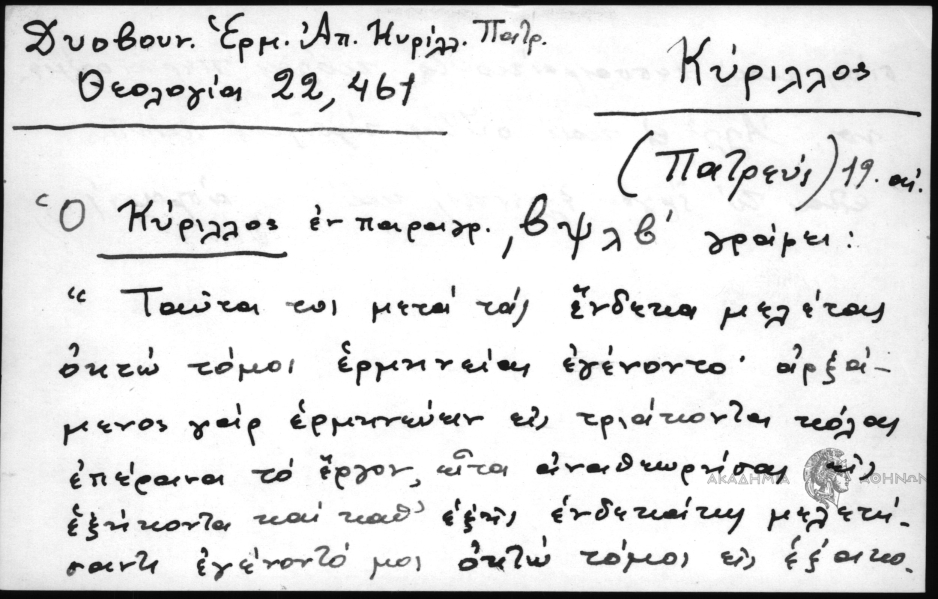 Δυοβουν. Ἑρμ. Ἀπ. Κυρίλλ. Πατρ.
Θεολογία 22, 461
Κύριλλος
(Πατρεύς) 19. αἰ.
Ὁ Κύριλλος ἐν παραγρ. ͵βψλβʹ γράφει:
“ Ταῦτα τοι μετά τάς ἕνδεκα μελέτας
ὀκτώ τόμοι ἑρμηνείας ἐγένοντο· ἀρξά-
μενος γάρ ἑρμηνεύειν εἰς τριάκοντα κόλας
ἐπέρανα τό ἔργον, εἶτα ἀναθεωρήσας εἰς
ἑξήκοντα καί καθ’ ἑξῆς ἑνδεκάκις μελετή-
σαντι ἐγένοντό μοι ὀκτώ τόμοι εἰς ἑξακο-
ΑΚΑΔΗΜΙΑ ΑΘΗΝΩΝ